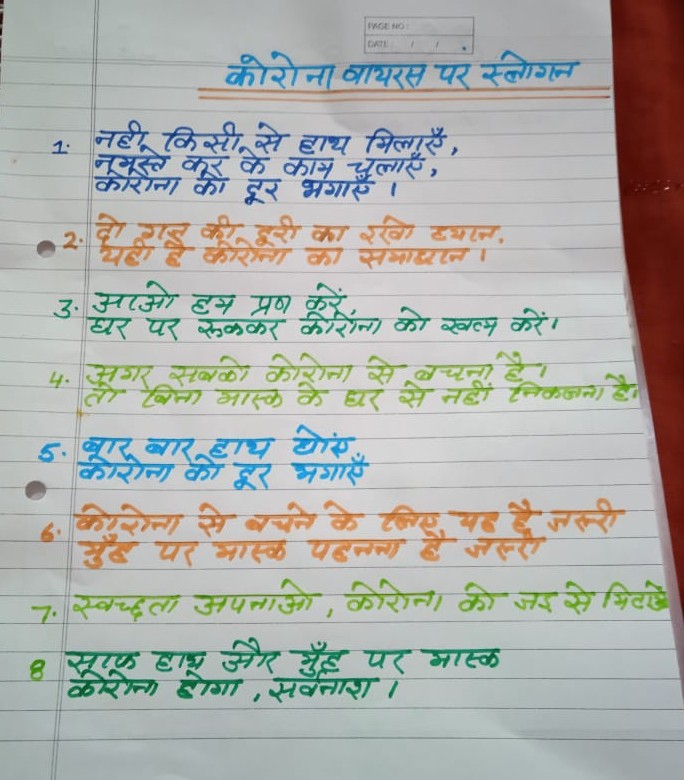 PAGE NO:
DATE: / /
कोरोना वायरस पर स्लोगन
1. नही किसी से हाथ मिलाएँ,
नमस्ते कर के काम चलाएँ,
कोरोना को दूर भगाएँ ।
2. दो गज की दूरी का रखो ध्यान,
यही है कोरोना का समाधान ।
3. आओ हम प्रण करें,
घर पर रूककर कोरोना को खत्म करें।
4. अगर सबको कोरोना से बचना है।
तो बिना मास्क के घर से नहीं निकलना है।
5. बार बार हाथ धोएं
कोरोना को दूर भगाएँ
6. कोरोना से बचने के लिए यह है जरूरी
मुँह पर मास्क पहनना है जरूरी
7. स्वच्छता अपनाओ, कोरोना को जड़ से मिटाओ
8 साफ हाथ और मुँह पर मास्क
कोरोना होगा, सर्वनाश ।